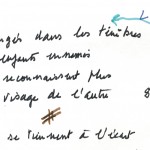 ngés dans les ténèbres
urgents ennemis
se connaissent plus
visage de l'autre
se tiennent à l'écart